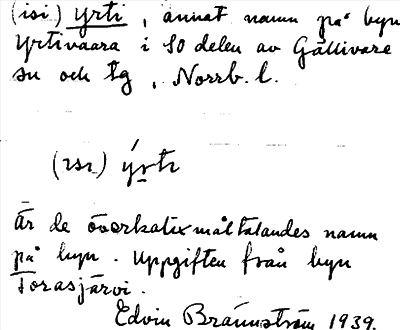 (isi) yrti, annat namn på byn
Yrtivaara i SO delen av Gällivare
sn och tg, Norrb. l.
(ɪsɪ) ýrtɪ
Är de överkalixmåltalandes namn
på byn. Uppgiften från byn
Torasjärvi.
Edvin Brännström 1939.